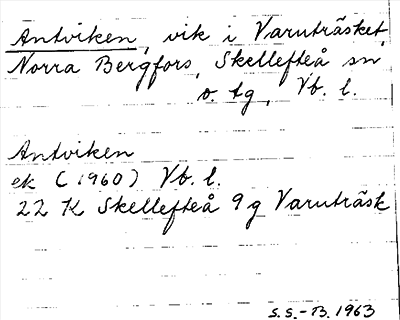 Antviken, vik i Varuträsket,
Norra Bergfors, Skellefteå sn
o. tg, Vb. l.
Antviken
ek (1960) Vb. l.
22 K Skellefteå 9 g Varuträsk
S.S.-B. 1963